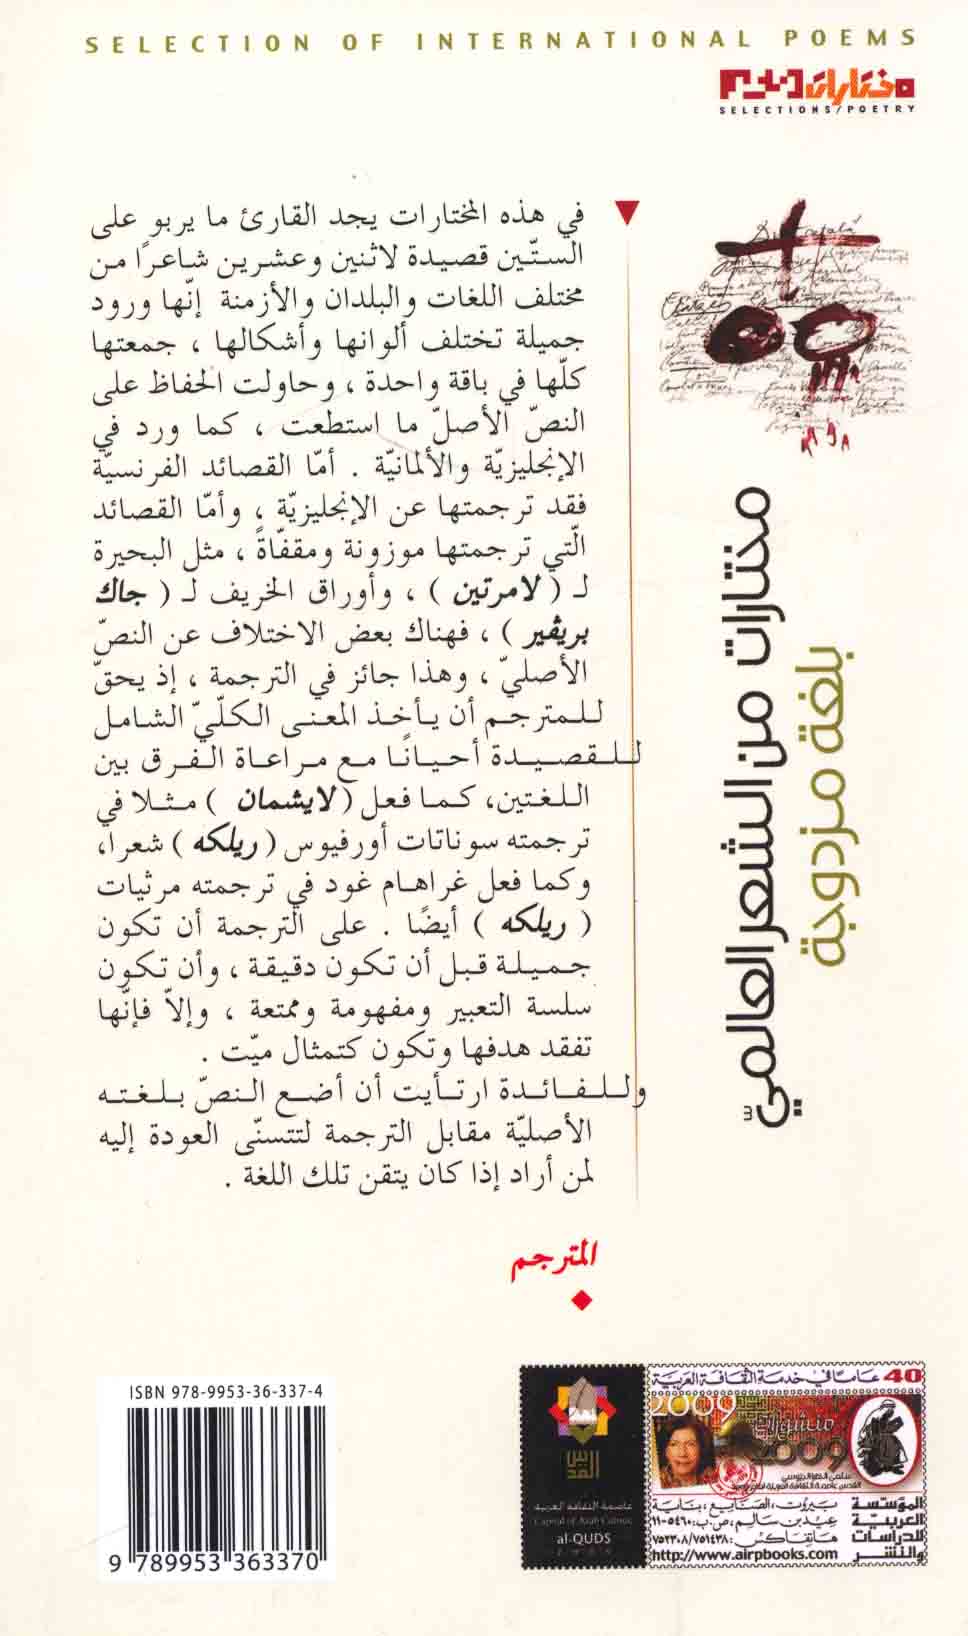 SELECTION OF INTERNATIONAL POEMS
مختارات شعر
SELECTIONS/POETRY
مختارات من الشعر العالميّ
بلغة مزدوجة
في هذه المختارات يجد القارئ ما يربو على
الستّين قصيدة لاثنين وعشرين شاعرًا من
مختلف اللغات والبلدان والأزمنة إنّها ورود
جميلة تختلف ألوانها وأشكالها ، جمعتها
كلّها في باقة واحدة ، وحاولت الحفاظ على
النصّ الأصلّ ما استطعت ، كما ورد في
الإنجليزيّة والألمانيّة . أمّا القصائد الفرنسيّة
فقد ترجمتها عن الإنجليزيّة ، وأمّا القصائد
الّتي ترجمتها موزونة ومقفّاة ، مثل البحيرة
لـ ( لامرتين ) ، وأوراق الخريف لـ ( جاك
بريڤير ) ، فهناك بعض الاختلاف عن النصّ
الأصليّ ، وهذا جائز في الترجمة ، إذ يحقّ
للمترجم أن يأخذ المعنى الكلّيّ الشامل
للقصيدة أحيانًا مع مراعاة الفرق بين
اللغتين، كما فعل (لايشمان ) مثلا في
ترجمته سوناتات أورفيوس (ريلكه ) شعرا،
وكما فعل غراهام غود في ترجمته مرثيات
( ريلكه ) أيضًا . على الترجمة أن تكون
جميلة قبل أن تكون دقيقة ، وأن تكون
سلسة التعبير ومفهومة وممتعة ، وإلاّ فإنّها
تفقد هدفها وتكون كتمثال ميّت .
وللفائدة ارتأيت أن أضع النصّ بلغته
الأصليّة مقابل الترجمة لتتسنّى العودة إليه
لمن أراد إذا كان يتقن تلك اللغة .
المترجم
ISBN 978-9953-36-337-4
9 789953 363370
القدس
عاصمة الثقافة العربية
Capital of Arab Culture
al-QUDS
40 عاما في خدمة الثقافة العربية
2009
2009
المؤسسة
العربية
للدراسات
والنشر
بيروت، الصنايع، بناية
عيد بن سالم، ص.ب: ٥٤٦٠-١١
هاتفاكس: ٧٥٢٣٠٨/٧٥١٤٣٨
http://www.airpbooks.com